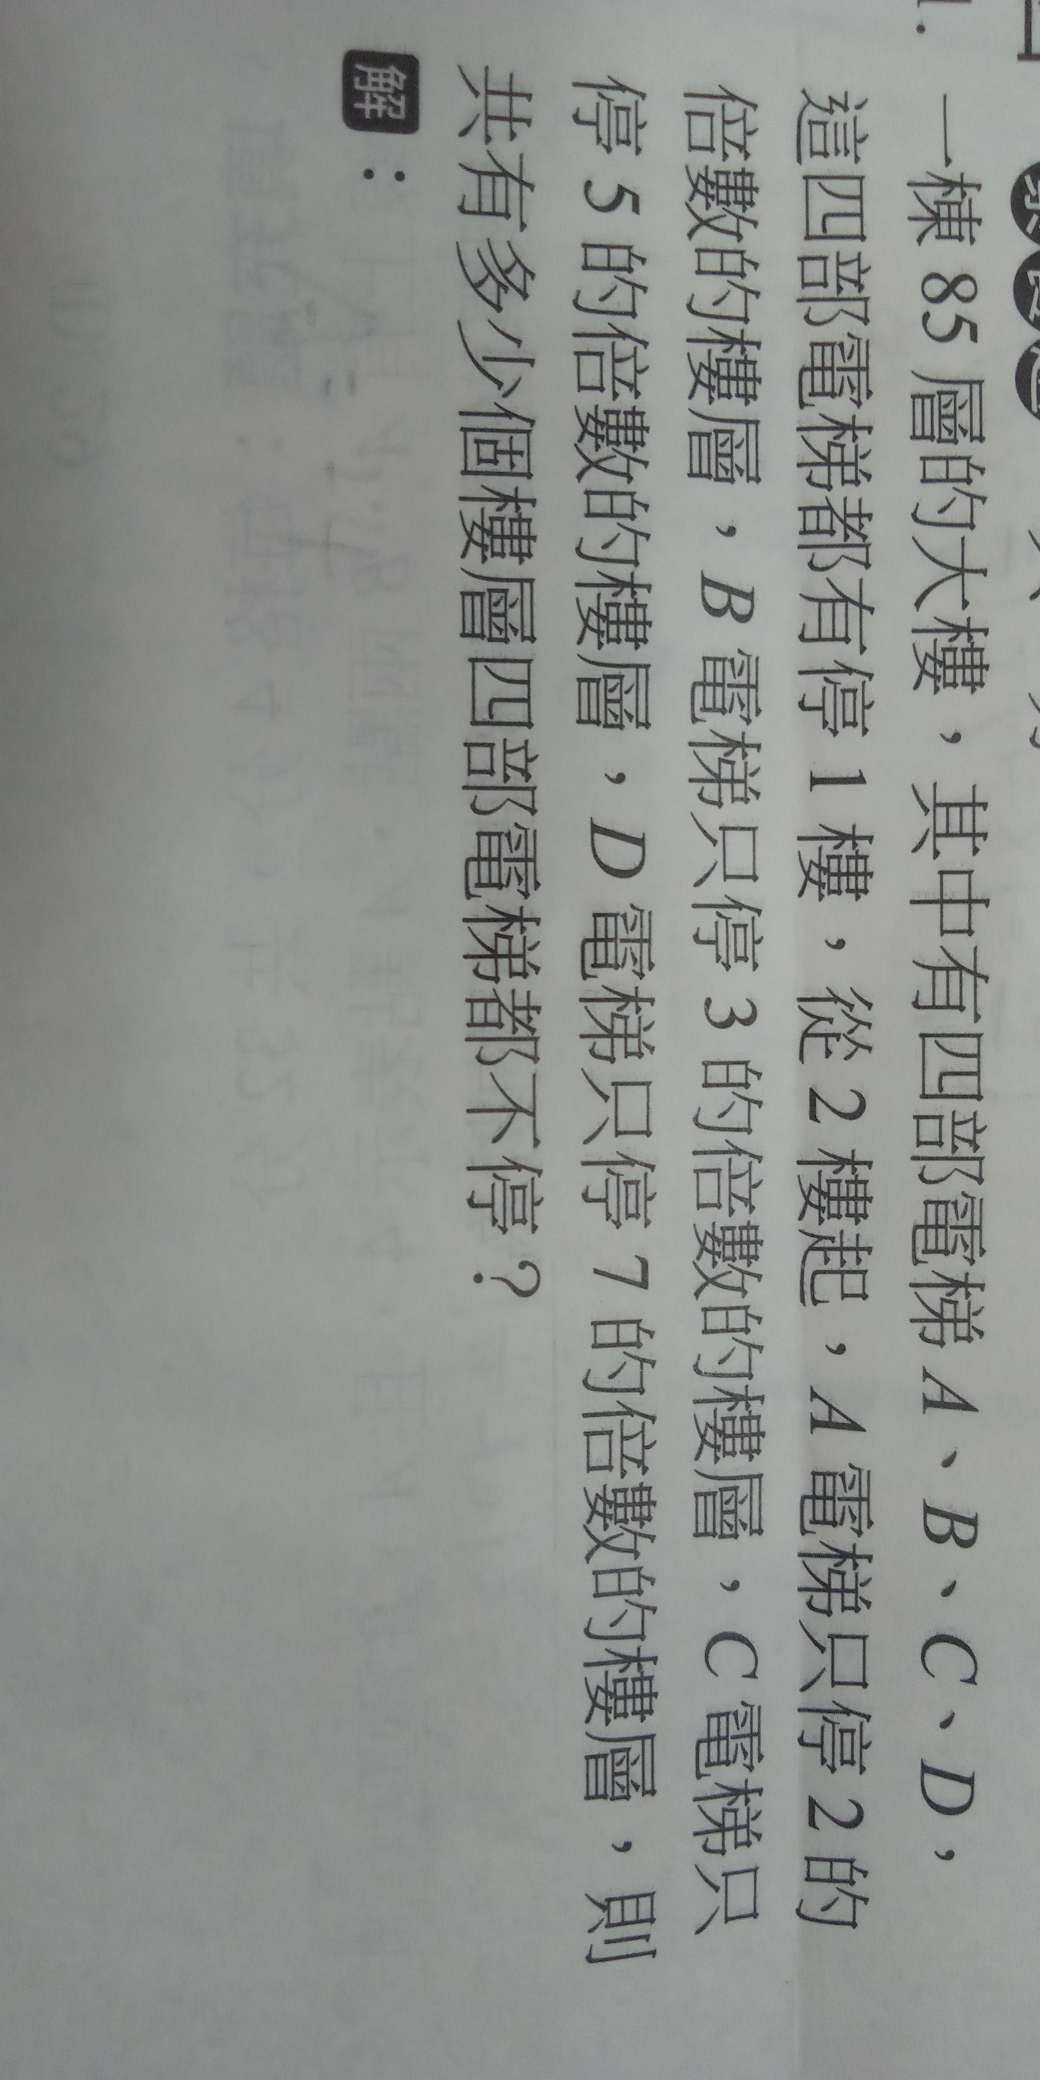 1. 一棟 85 層的大樓，其中有四部電梯 A、B、C、D，
這四部電梯都有停 1 樓，從 2 樓起，A 電梯只停 2 的
倍數的樓層，B 電梯只停 3 的倍數的樓層，C 電梯只
停 5 的倍數的樓層，D 電梯只停 7 的倍數的樓層，則
共有多少個樓層四部電梯都不停？
解：